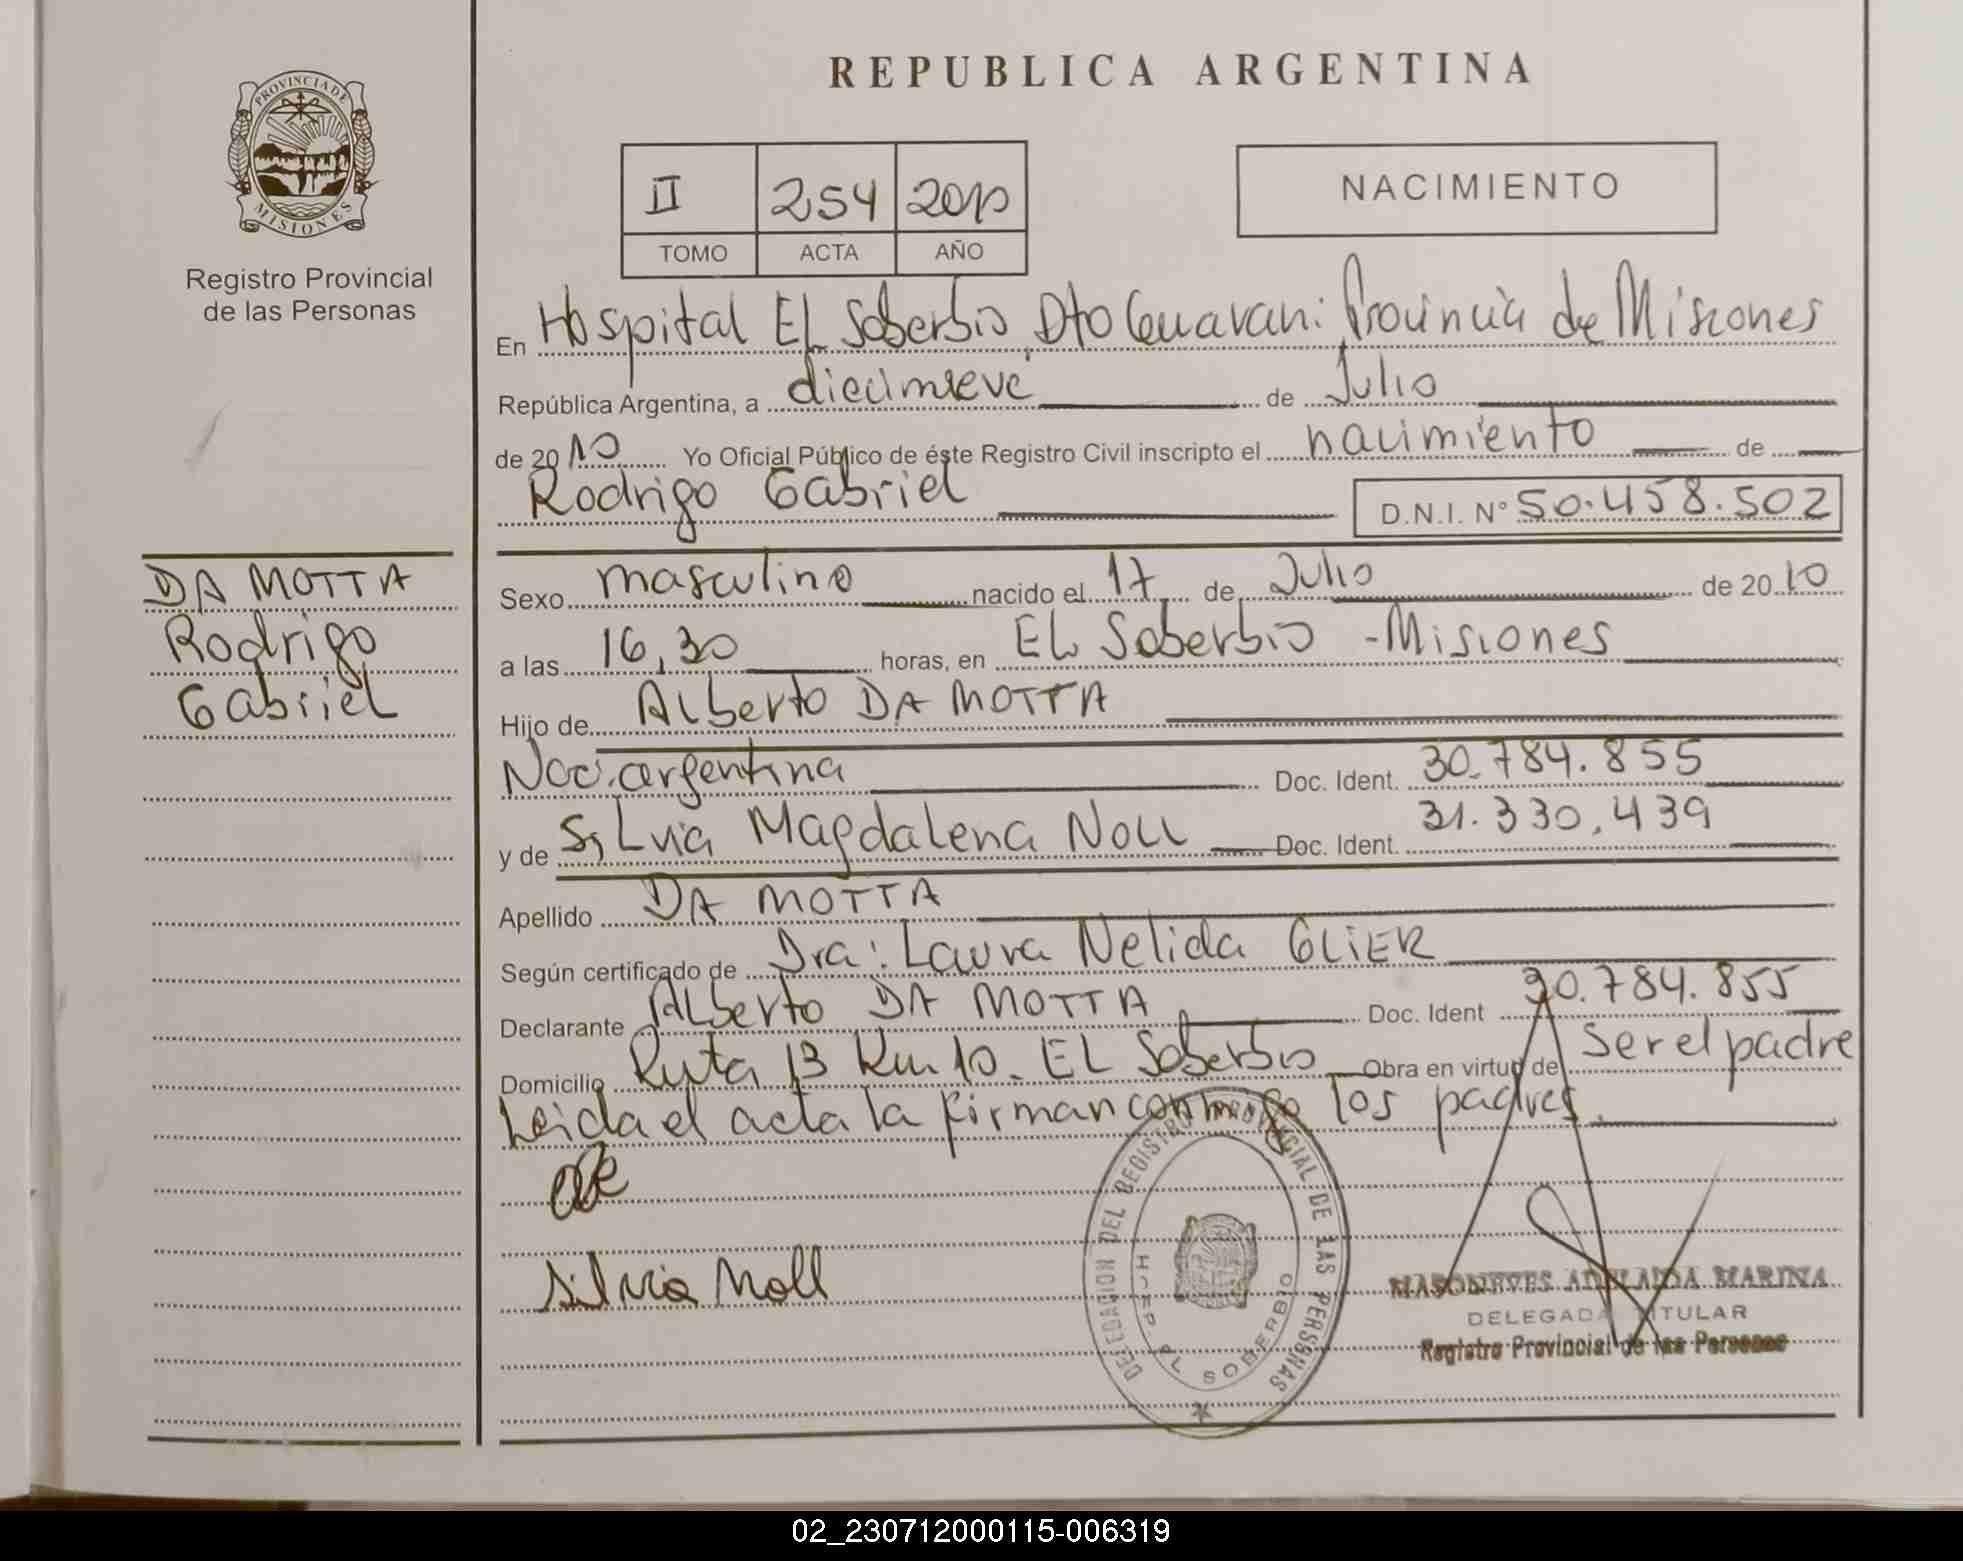 REPUBLICA ARGENTINA
PROVINCIA DE
MISIONES
Registro Provincial
de las Personas
II 254 2010
TOMO ACTA AÑO
NACIMIENTO
En Hospital EL Soberbio, Dto Guarani Provincia de Misiones
República Argentina, a diecinueve de Julio
de 2010 Yo Oficial Público de éste Registro Civil inscripto el nacimiento de
Rodrigo Gabriel D.N.I. N° 50.458.502
DA MOTTA
Rodrigo
Gabriel
Sexo masculino nacido el 17 de Julio de 2010
a las 16,30 horas, en EL Soberbio - Misiones
Hijo de Alberto DA MOTTA
Nac. argentina Doc. Ident. 30.784.855
y de Silvia Magdalena NOLL Doc. Ident. 31.330.439
Apellido DA MOTTA
Según certificado de Dra: Laura Nelida GLIER
Declarante Alberto DA MOTTA Doc. Ident 30.784.855
Domicilio Ruta 13 Km 10. EL Soberbio Obra en virtud de ser el padre
Leida el acta la firman conmigo los padres.
Silvia Noll
DELEGACION DEL REGISTRO PROVINCIAL DE LAS PERSONAS
EL SOBERBIO
ADELAIDA MARINA
DELEGADA TITULAR
Registro Provincial de las Personas
02_230712000115-006319